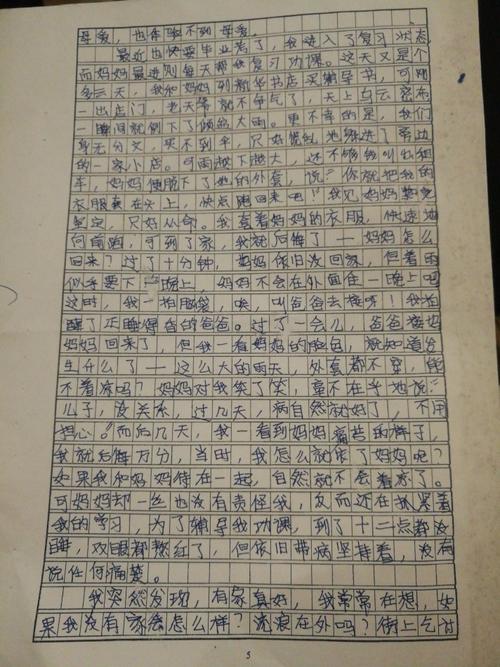 母爱，也体味不到母爱。
最近也快要毕业考了，我进入了复习状态，
而妈妈最近则每天帮我复习功课。这天又是个
多云天，我和妈妈到新华书店买辅导书，可刚
一出店门，老天爷就不争气了，天上乌云密布
一瞬间就倒下了倾盆大雨。更不幸的是，我们
身无分文，买不到伞，只好慌乱地躲进了旁边
的一家小店。可雨越下越大，还不够钱叫出租
车，妈妈便脱下了她的外套，说："你就把我的
衣服盖在头上，快点跑回来吧！"我见妈妈要
坚定，只好从命。我套着妈妈的衣服，快速地
向前跑，可到了家，我就后悔了——妈妈怎么
回来？过了十分钟，妈妈依旧没回家，但看雨
似乎要下一晚上，妈妈不会在外面住一晚上吧
这时，我一拍脑袋，唉，叫爸爸去接呀！我拍
醒了正睡得香的爸爸。过了一会儿，爸爸接妈
妈妈回来了，但我一看妈妈的脸色，就知道发
生什么了——这么大的雨天，外套都不穿，能
不着凉吗？妈妈对我笑了笑，毫不在乎地说："
儿子，没关系，过几天，病自然就好了，不用
担心。"而后几天，我一看到妈妈痛苦的样子，
我就后悔万分，当时，我怎么就丢了妈妈呢？
如果我和妈妈待在一起，自然就不会着凉了。
可妈妈却一丝也没有责怪我，反而还在抓紧着
我的学习，为了辅导我功课，到了十二点都没
睡，双眼都熬红了，但依旧带病坚持着，没有
说任何痛楚。
我突然发现，有家真好，我常常在想，如
果我没有家会怎么样？流浪在外吗？街上乞讨
5